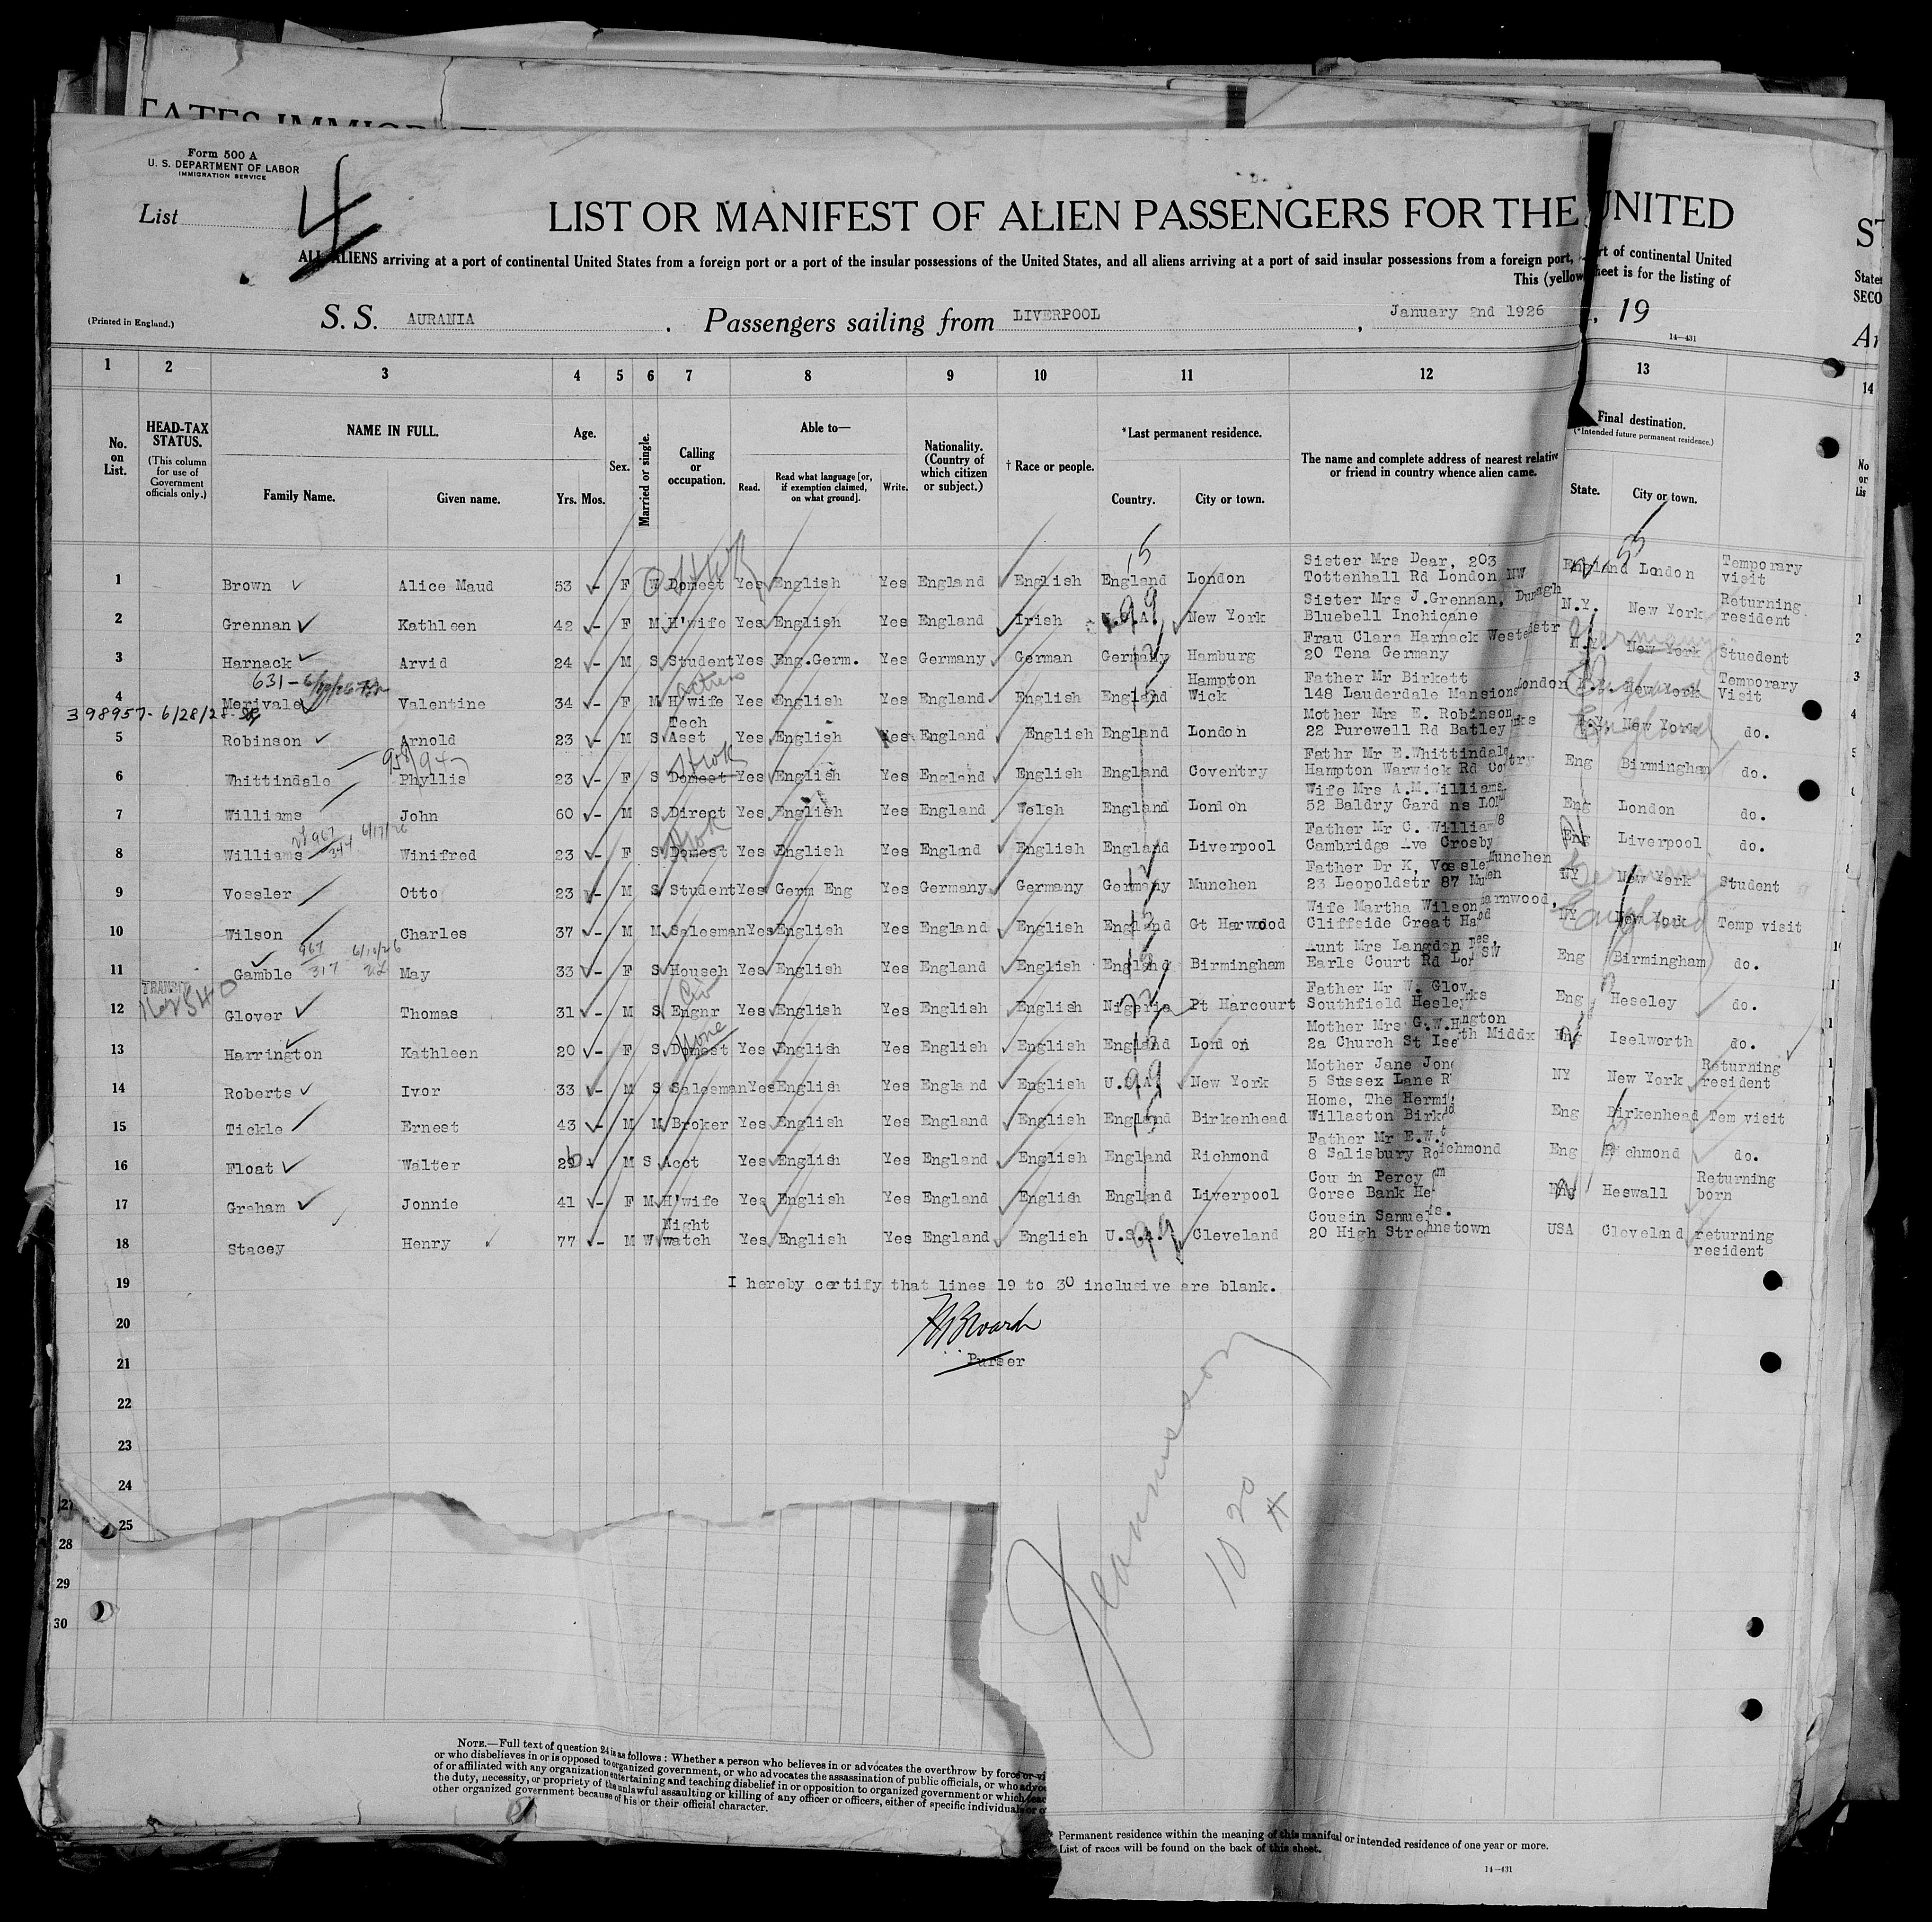 TATES IMMIGR
Form 500 A
U. S. DEPARTMENT OF LABOR
IMMIGRATION SERVICE
List 4
LIST OR MANIFEST OF ALIEN PASSENGERS FOR THE UNITED
ST
ALL ALIENS arriving at a port of continental United States from a foreign port or a port of the insular possessions of the United States, and all aliens arriving at a port of said insular possessions from a foreign port, rt of continental United
States
This (yellow heet is for the listing of
SECO
(Printed in England.)
S. S. AURANIA . Passengers sailing from LIVERPOOL , January 2nd 1926 , 19
14—431
1 2 3 4 5 6 7 8 9 10 11 12 13 14
No. on List.
HEAD-TAX STATUS. (This column for use of Government officials only.)
NAME IN FULL. Family Name. Given name.
Age. Yrs. Mos.
Sex.
Married or single.
Calling or occupation.
Able to— Read. Read what language [or, if exemption claimed, on what ground]. Write.
Nationality. (Country of which citizen or subject.)
† Race or people.
*Last permanent residence. Country. City or town.
The name and complete address of nearest relative or friend in country whence alien came.
Final destination. (*Intended future permanent residence.) State. City or town.
1 Brown Alice Maud 53 F W Domest Yes English Yes England English England London Sister Mrs Dear, 203 Tottenhall Rd London NW England London Temporary visit
2 Grennan Kathleen 42 F M H'wife Yes English Yes England Irish New York Sister Mrs J.Grennan, Bluebell Inchicane N.Y. New York Returning resident
3 Harnack Arvid 24 M S Student Yes Eng.Germ. Yes Germany German Germany Hamburg Frau Clara Harnack Westendstr 20 Tena Germany N.Y. New York Stuedent
Germany
631 -
4 Merivale Valentine 34 F M H'wife Actress Yes English Yes England English England Hampton Wick Father Mr Birkett 148 Lauderdale Mansions London N.Y. New York Temporary Visit
England
398957 - 6/28/28
5 Robinson Arnold 23 M S Tech Asst Yes English Yes England English England London Mother Mrs E. Robinson 22 Purewell Rd Batley N.Y. New York do.
England
6 Whittindale Phyllis 23 F S Domest Yes English Yes England English England Coventry Fathr Mr E.Whittindale Hampton Warwick Rd Eng Birmingham do.
7 Williams John 60 M S Direct Yes English Yes England Welsh England London Wife Mrs A.M.Williams 52 Baldry Gard ns Eng London do.
6/17/26
8 Williams Winifred 23 F S Domest Yes English Yes England English England Liverpool Father Mr C. Williams Cambridge Ave Crosby Eng Liverpool do.
9 Vossler Otto 23 M S Student Yes Germ Eng Yes Germany Germany Germany Munchen Father Dr K, Vossler Munchen 23 Leopoldstr 87 NY New York Student
Germany
10 Wilson Charles 37 M M Salesman Yes English Yes England English England Gt Harwood Wife Martha Wilson Cliffside Great NY New York Temp visit
England
967 317 6/10/26
11 Gamble May 33 F S Househ Yes English Yes England English England Birmingham Aunt Mrs Langdon Earls Court Rd SW Eng Birmingham do.
TRANSIT
12 Glover Thomas 31 M S Civ Engnr Yes English Yes English English Nigeria Pt Harcourt Father Mr W. Glov Southfield Hesley Eng Heseley do.
13 Harrington Kathleen 20 F S Domest None Yes English Yes English English England London Mother Mrs G.W.H ngton 2a Church St Ise th Middx Eng Iselworth do.
14 Roberts Ivor 33 M S Salesman Yes English Yes England English U.S.A. New York Mother Jane Jon 5 Sussex Lane NY New York Returning resident
15 Tickle Ernest 43 M M Broker Yes English Yes England English England Birkenhead Home, The Hermi Willaston Birk Eng Birkenhead Tem visit
16 Float Walter M S Acct Yes English Yes England English England Richmond Father Mr E.W. 8 Salisbury Ro ichmond Eng Richmond do.
17 Graham Jonnie 41 F M H'wife Yes English Yes England English England Liverpool Cou in Percy Gorse Bank He Eng Heswall Returning born
18 Stacey Henry 77 M W Night watch Yes English Yes England English U.S.A. Cleveland Cousin Samuel 20 High Stre hnstown USA Cleveland returning resident
19 I hereby certify that lines 19 to 30 inclusive are blank.
20
Purser
21
22
23
24
25
27
28
29
30
Jeannesson
10 20
NOTE.—Full text of question 24 is as follows : Whether a person who believes in or advocates the overthrow by force or vi
or who disbelieves in or is opposed to organized government, or who advocates the assassination of public officials, or who advoc
of or affiliated with any organization entertaining and teaching disbelief in or opposition to organized government or which teac
the duty, necessity, or propriety of the unlawful assaulting or killing of any officer or officers, either of specific individuals or o
other organized government because of his or their official character.
Permanent residence within the meaning of this manifest or intended residence of one year or more.
List of races will be found on the back of this sheet.
14—431